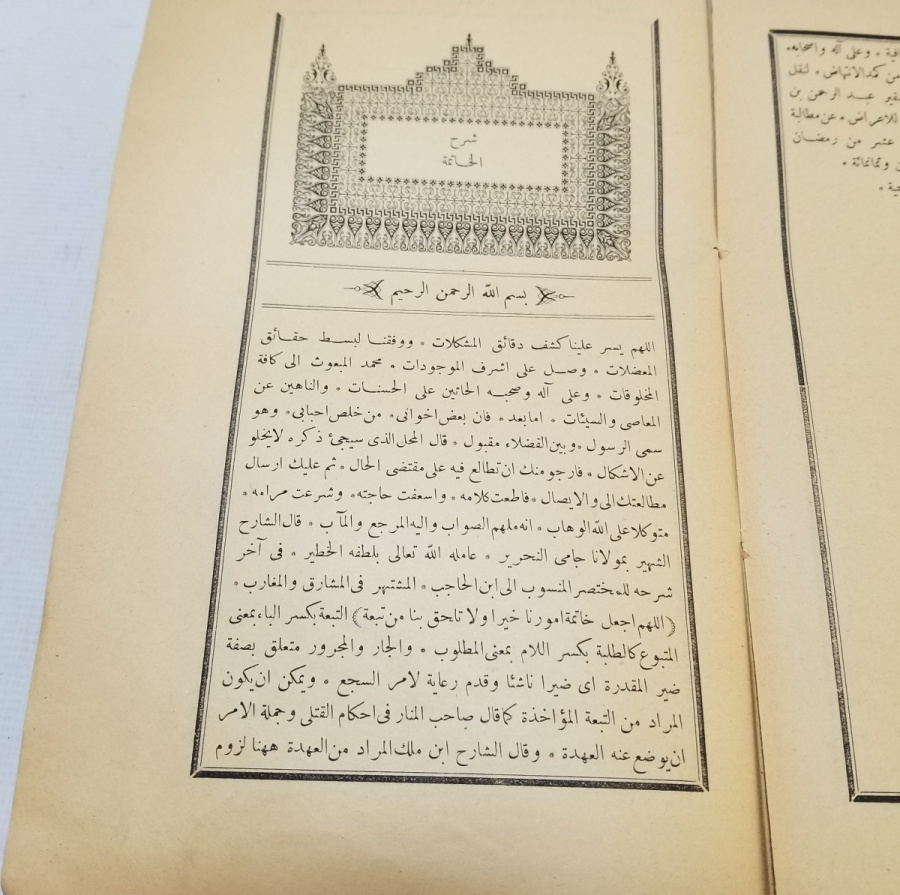 افية * وعلى آله واصحابه*
من كد الانتهاض * لنقل
عبد الرحمن بن
للاعراض * عن مطالبة
عشر من رمضان
وثمانمائة *
شرح
الخاتمة
بسم الله الرحمن الرحيم
اللهم يسر علينا كشف دقائق المشكلات * ووفقنا لبسط حقائق
المعضلات * وصل على اشرف الموجودات * محمد المبعوث الى كافة
المخلوقات * وعلى آله وصحبه الحاثين على الحسنات * والناهين عن
المعاصى والسيئات * اما بعد * فان بعض اخوانى * من خلص احبابى * وهو
سمى الرسول * وبين الفضلاء مقبول * قال المحل الذى سيجئ ذكره لايخلو
عن الاشكال * فارجو منك ان تطالع فيه على مقتضى الحال * ثم عليك ارسال
مطالعتك الى والايصال * فاطعت كلامه * واسعفت حاجته * وشرعت مرامه *
متوكلا على الله الوهاب * انه ملهم الصواب واليه المرجع والمآب * قال الشارح
الشهير بمولانا جامى النحرير * عامله الله تعالى بلطفه الخطير * فى آخر
شرحه للمختصر المنسوب الى ابن الحاجب * المشتهر فى المشارق والمغارب *
(اللهم اجعل خاتمة امورنا خيرا ولا تلحق بنا من تبعة) التبعة بكسر الباء بمعنى
المتبوع كالطلبة بكسر اللام بمعنى المطلوب * والجار والمجرور متعلق بصفة
ضير المقدرة اى ضيرا ناشئا وقدم رعاية لامر السجع * ويمكن ان يكون
المراد من التبعة المؤاخذة كما قال صاحب المنار فى احكام القتلى وجملة الامر
ان يوضع عنه العهدة * وقال الشارح ابن ملك المراد من العهدة ههنا لزوم